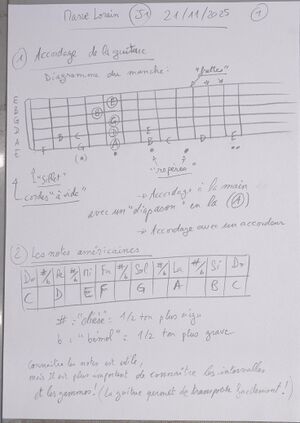 Marie Lorain S1 21/11/2025 1
1) Accordage de la guitare
Diagramme du manche:
"frettes"
E
B
G
D
A
E
E
B
G
D B C A E
F G A B C D E
"Sillet"
"repères"
cordes "à vide"
→ Accordage à la main
avec un "diapason" en la (A)
→ Accordage avec un accordeur
2) Les notes américaines
Do #/b Ré #/b Mi Fa #/b Sol #/b La #/b Si Do
C D E F G A B C
# : "dièse" : 1/2 ton plus aigu
b : "bémol" : 1/2 ton plus grave
Connaître les notes est utile,
mais il est plus important de connaître les intervalles
et les gammes! (La guitare permet de transposer facilement!)